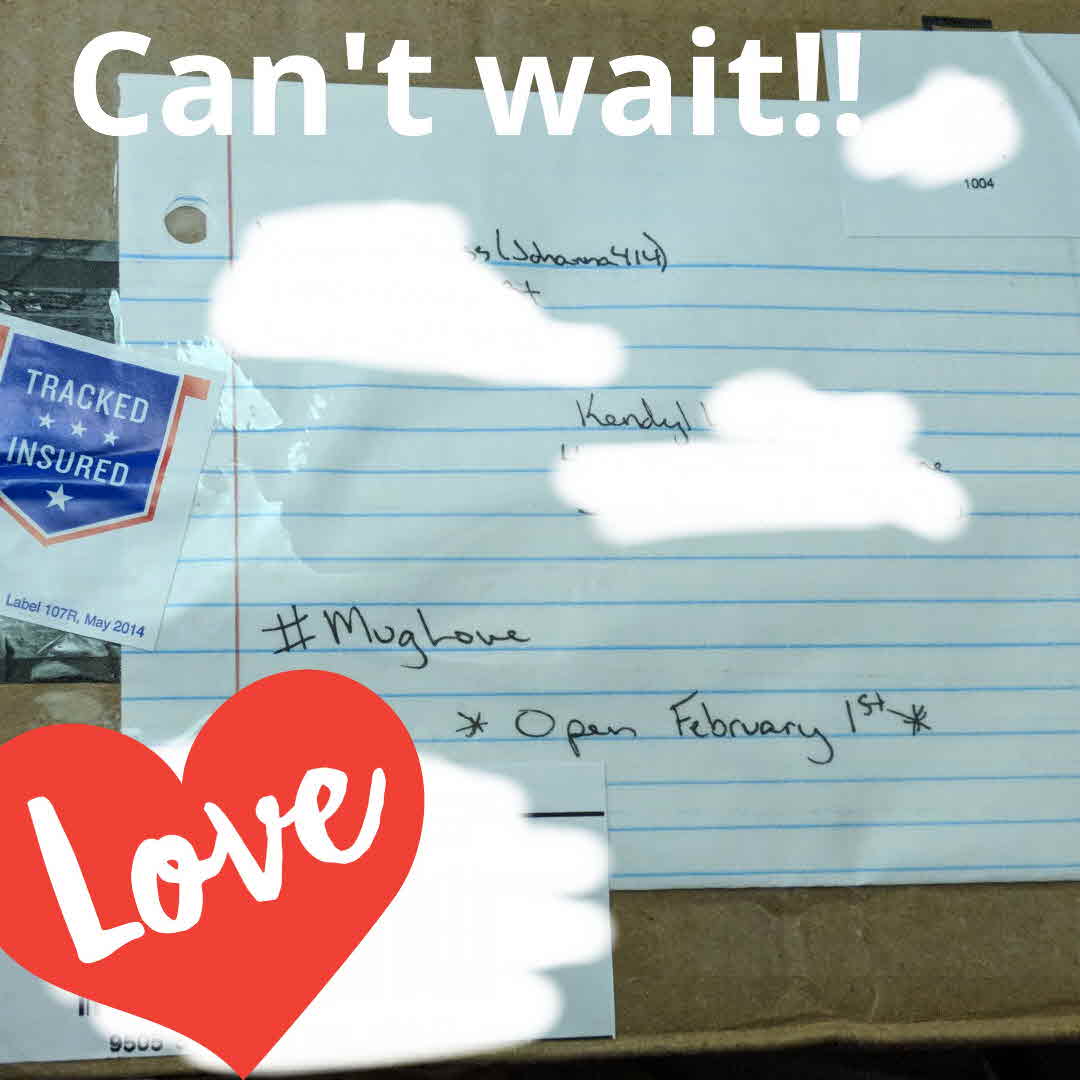 Can't wait!!
1004
(Johanna414)
Kendyl
TRACKED
INSURED
Label 107R, May 2014
#MugLove
* Open February 1st *
Love
9505